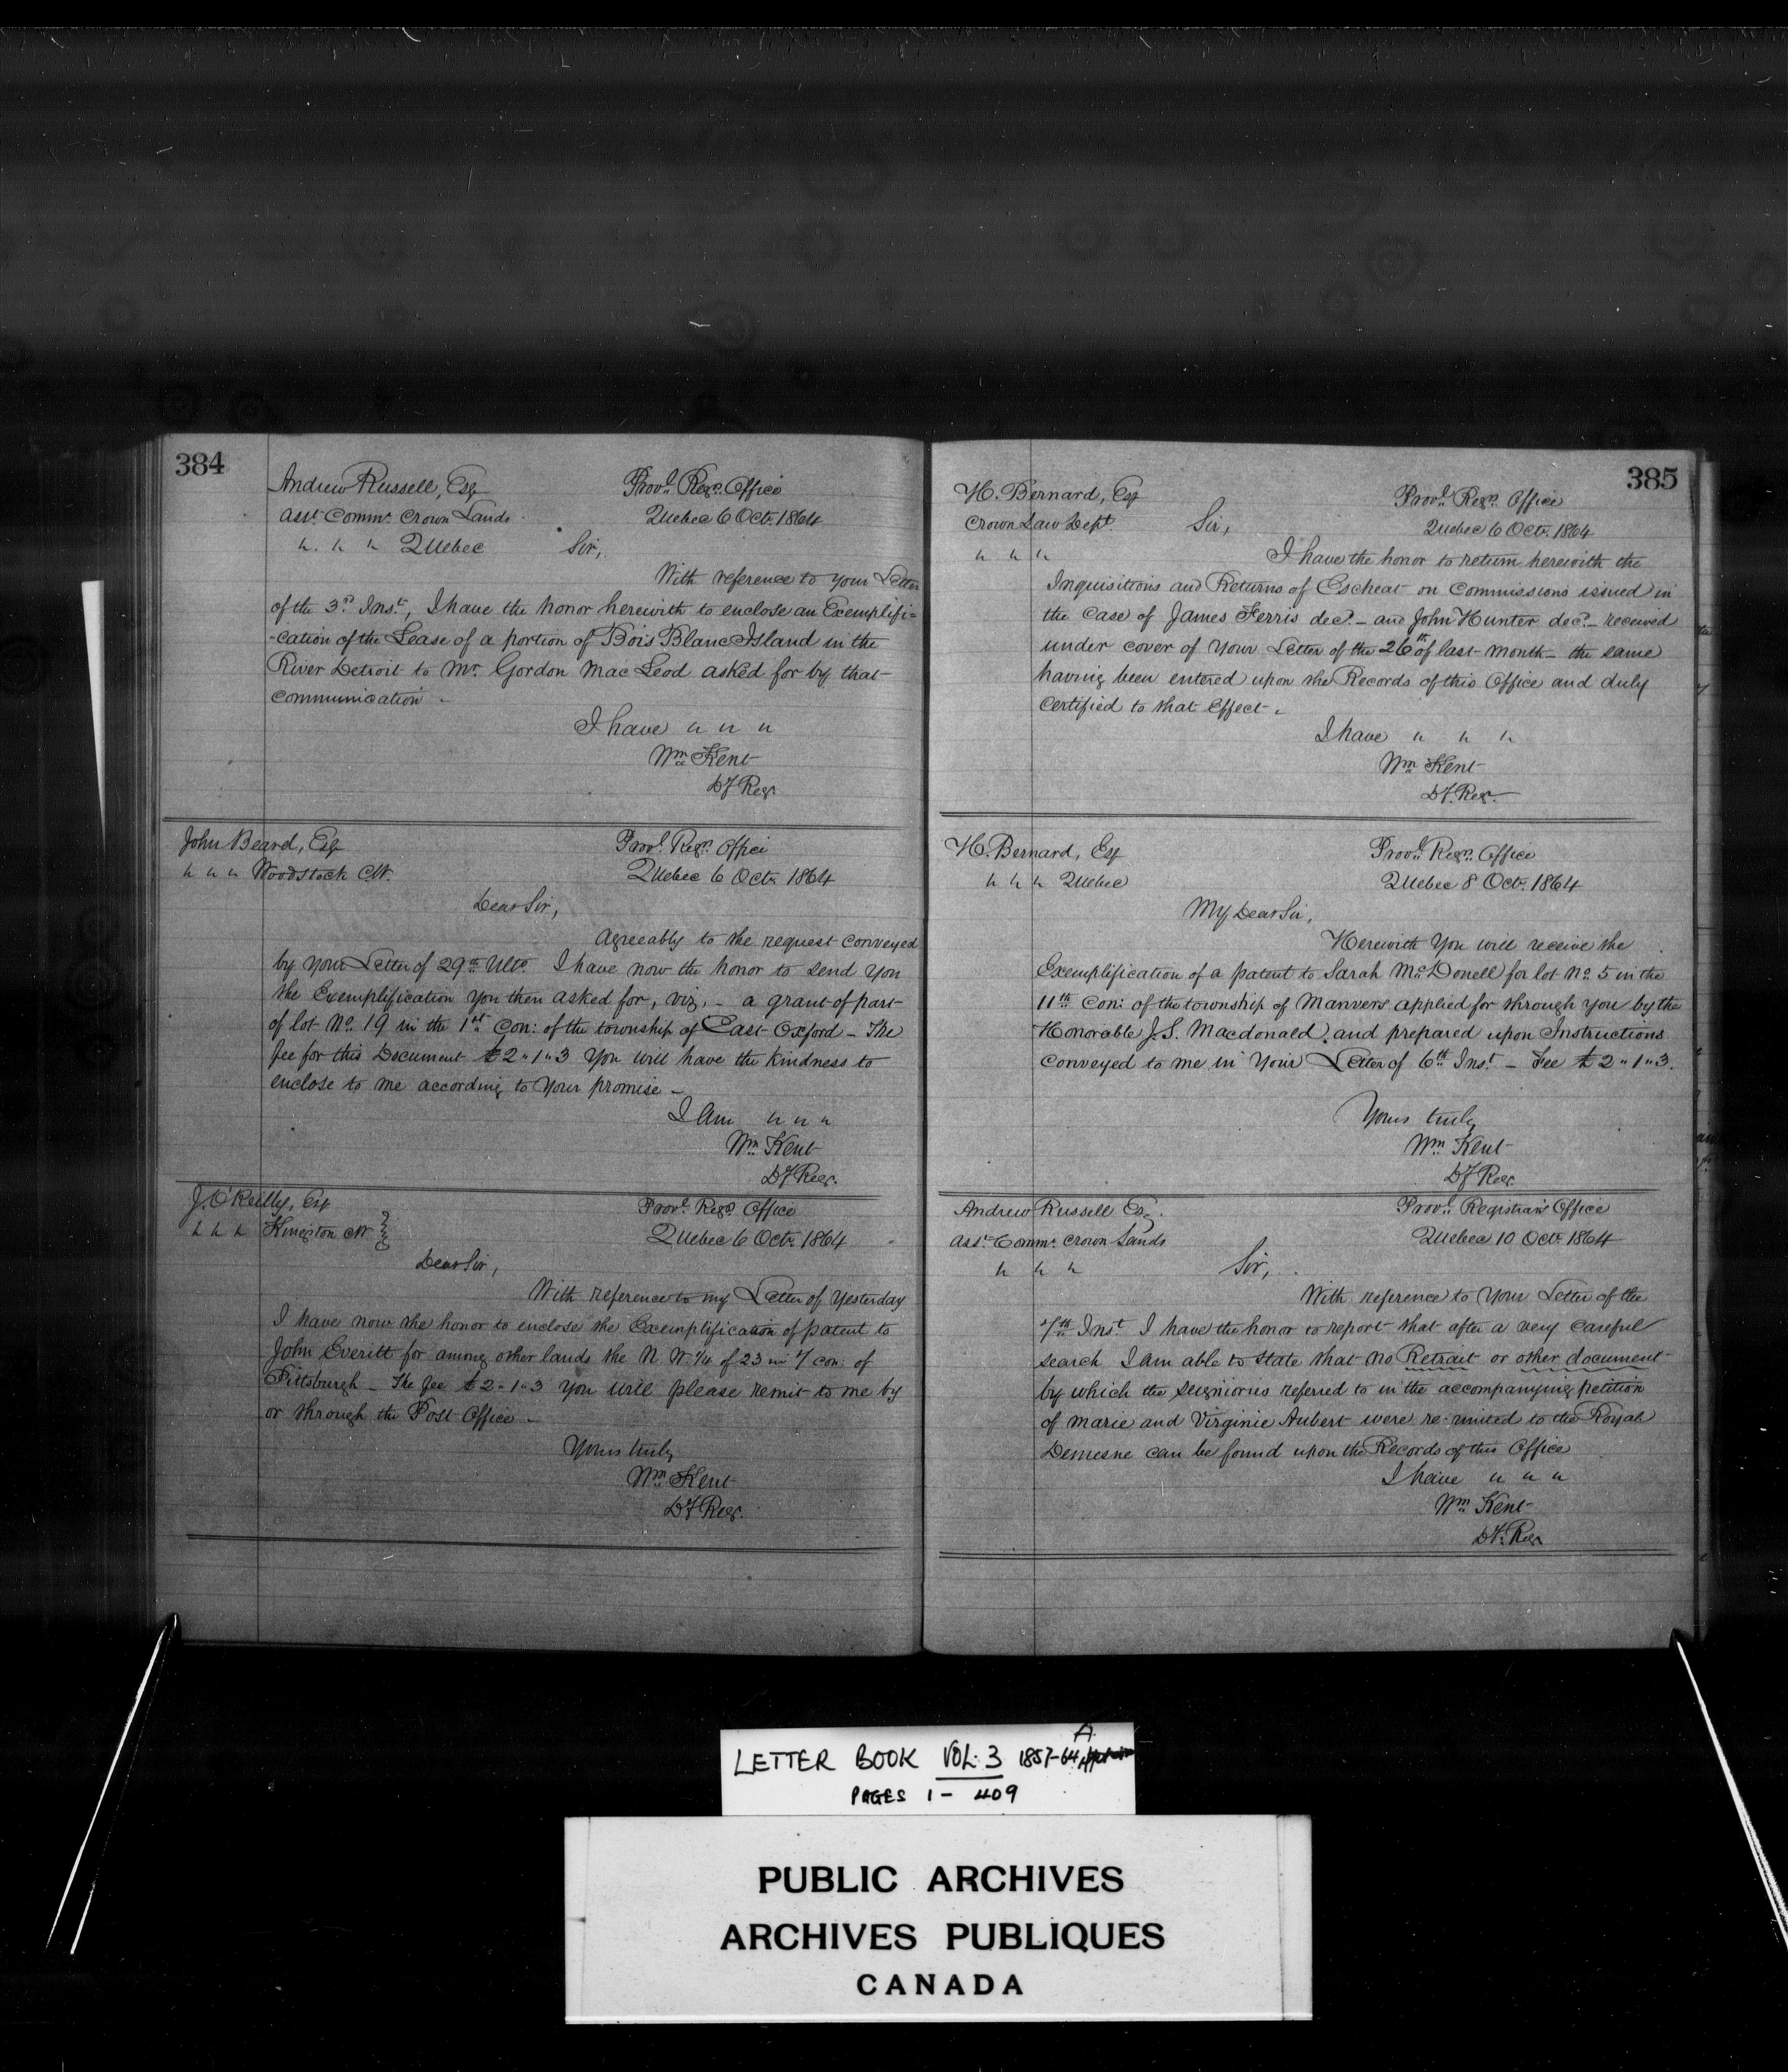 384
Andrew Russell, Esq
Provl. Regrs. Office
Asst. Commr. Crown Lands
Quebec 6 Octr. 1864
" " " Quebec
Sir,
With reference to your Letter
of the 3rd. Inst., I have the honor herewith to enclose an Exemplifi=
-cation of the Lease of a portion of Bois Blanc Island in the
River Detroit to Mr. Gordon MacLeod asked for by that
communication -
I have " " "
Wm. Kent
Dy Regr.
John Beard, Esq
Provl. Regrs. Office
" " " Woodstock CW.
Quebec 6 Octr. 1864
Dear Sir,
Agreeably to the request conveyed
by your Letter of 29th. Ulto. I have now the honor to send you
the Exemplification you then asked for, viz, - a grant of part
of lot No. 19 in the 1st. Con: of the township of East Oxford - The
fee for this Document £2"1"3 you will have the kindness to
enclose to me according to your promise -
I Am " " "
Wm. Kent
Dy Regr.
J. O'Reilly, Esq
Provl. Regrs. Office
" " " Kingston CW
Quebec 6 Octr. 1864
Dear Sir,
With reference to my Letter of Yesterday
I have now the honor to enclose the Exemplification of patent to
John Everitt for among other lands the N W. 1/4 of 23 in 7 con: of
Pittsburgh - The fee £2-1-3 you will please remit to me by
or through the Post Office -
Yours truly
Wm. Kent
Dy Regr.
385
H. Bernard, Esq
Provl. Regrs. Office
Crown Law Dept.
Sir,
Quebec 6 Octr. 1864
" " "
I have the honor to return herewith the
Inquisitions and Returns of Escheat on Commissions issued in
the Case of James Ferris decd. - and John Hunter decd. - received
under cover of your Letter of the 26th of last month - the same
having been entered upon the Records of this Office and duly
certified to that Effect -
I have " " "
Wm. Kent
Dy. Regr.
H. Bernard, Esq
Provl. Regrs. Office
" " " Quebec
Quebec 8 Octr. 1864
My Dear Sir,
Herewith You will receive the
Exemplification of a patent to Sarah McDonell for lot No. 5 in the
11th. Con: of the township of Manvers applied for through you by the
Honorable J. S. Macdonald, and prepared upon Instructions
conveyed to me in Your Letter of 6th. Inst. - Fee £2"1"3.
Yours truly
Wm. Kent
Dy Regr.
Andrew Russell Esq.
Provl. Registrar's Office
Asst. Commr. Crown Lands
Quebec 10 Octr. 1864
" " "
Sir,
With reference to Your Letter of the
7th. Inst. I have the honor to report that after a very careful
search I am able to state that no Retrait or other document
by which the seigniories referred to in the accompanying petition
of Marie and Virginie Aubert were re-united to the Royal
Demesne can be found upon the Records of this Office
I have " " "
Wm. Kent
Dy. Regr
LETTER BOOK VOL. 3 1857-64 A
PAGES 1 - 409
PUBLIC ARCHIVES
ARCHIVES PUBLIQUES
CANADA